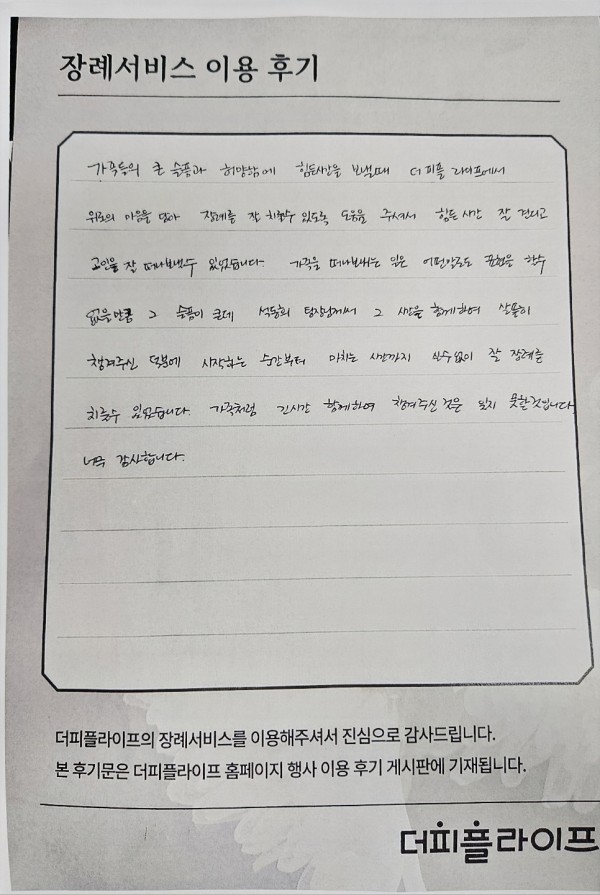 장례서비스 이용 후기
가족들의 큰 슬픔과 허망함에 힘든시간을 보낼때 더피플 라이프에서
위로의 마음을 담아 장례를 잘 치룰수 있도록 도움을 주셔서 힘든 시간 잘 견디고
고인을 잘 떠나보낼수 있었습니다. 가족을 떠나보내는 일은 어떤말로도 표현을 할수
없을만큼 그 슬픔이 큰데 석동희 팀장님께서 그 시간을 함께하여 살뜰히
챙겨주신 덕분에 시작하는 순간부터 마치는 시간까지 실수없이 잘 장례를
치룰수 있었습니다. 가족처럼 긴시간 함께하여 챙겨주신 것은 잊지 못할것입니다.
너무 감사합니다.
더피플라이프의 장례서비스를 이용해주셔서 진심으로 감사드립니다.
본 후기문은 더피플라이프 홈페이지 행사 이용 후기 게시판에 기재됩니다.
더피플라이프